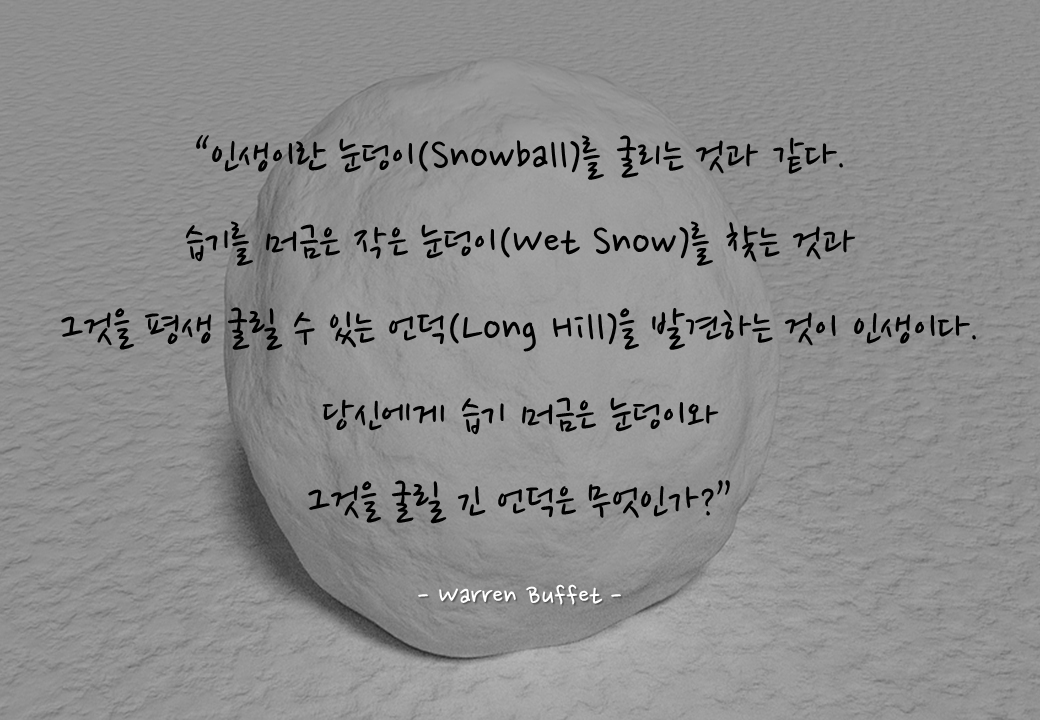 “인생이란 눈덩이(Snowball)를 굴리는 것과 같다.
습기를 머금은 작은 눈덩이(Wet Snow)를 찾는 것과
그것을 평생 굴릴 수 있는 언덕(Long Hill)을 발견하는 것이 인생이다.
당신에게 습기 머금은 눈덩이와
그것을 굴릴 긴 언덕은 무엇인가?”
- Warren Buffet -